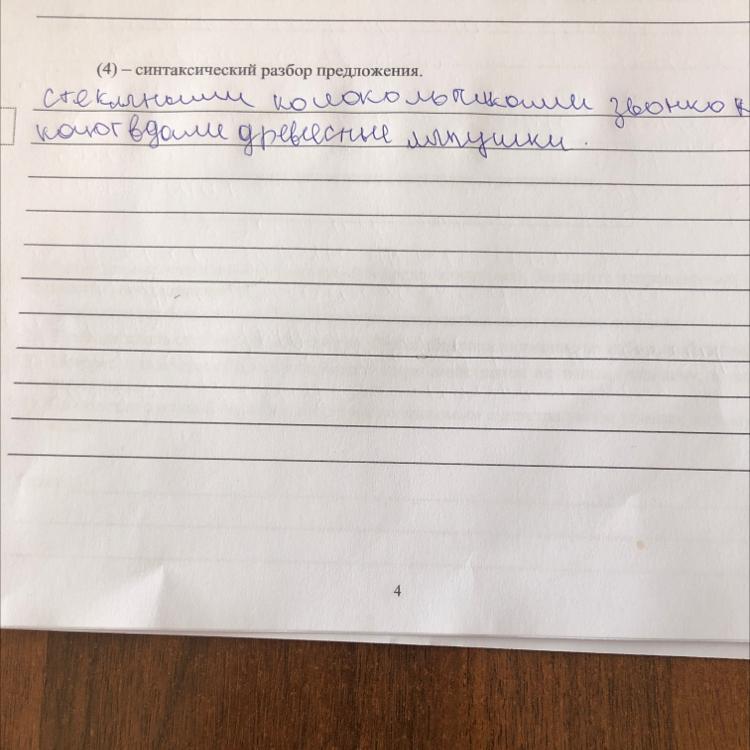 (4) – синтаксический разбор предложения.
стеклянными колокольчиками звонко
вдали древесные лягушки.
4